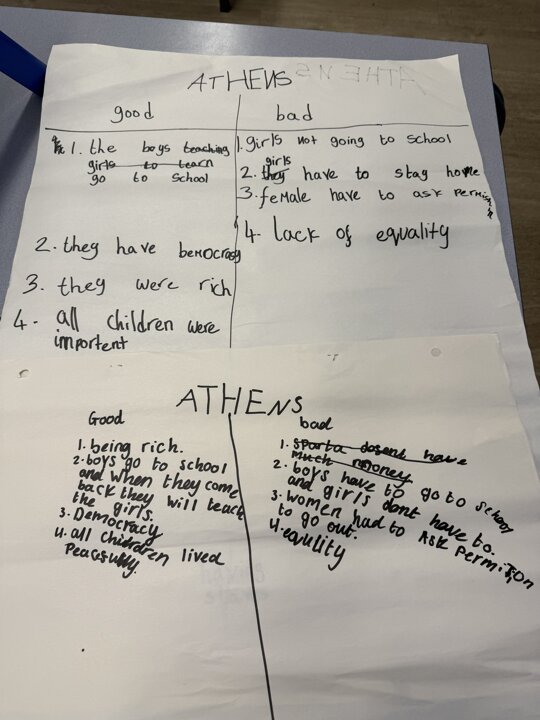 ATHENS
good
bad
1. the boys teaching
girls to learn
go to school
2. they have bemocrasy
3. they were rich
4. all children were
importent
1. girls not going to school
2. they girls have to stay home
3. female have to ask
4. lack of equality
ATHENS
Good
1. being rich.
2. boys go to school
and when they come
back they will teach
the girls.
3. Democracy
4. all children lived
Peacefully.
bad
1. Sparta dosent have
much mooney
2. boys have to go to school
and girls dont have to.
3. women had to Ask Permition
to go out.
4. equlity